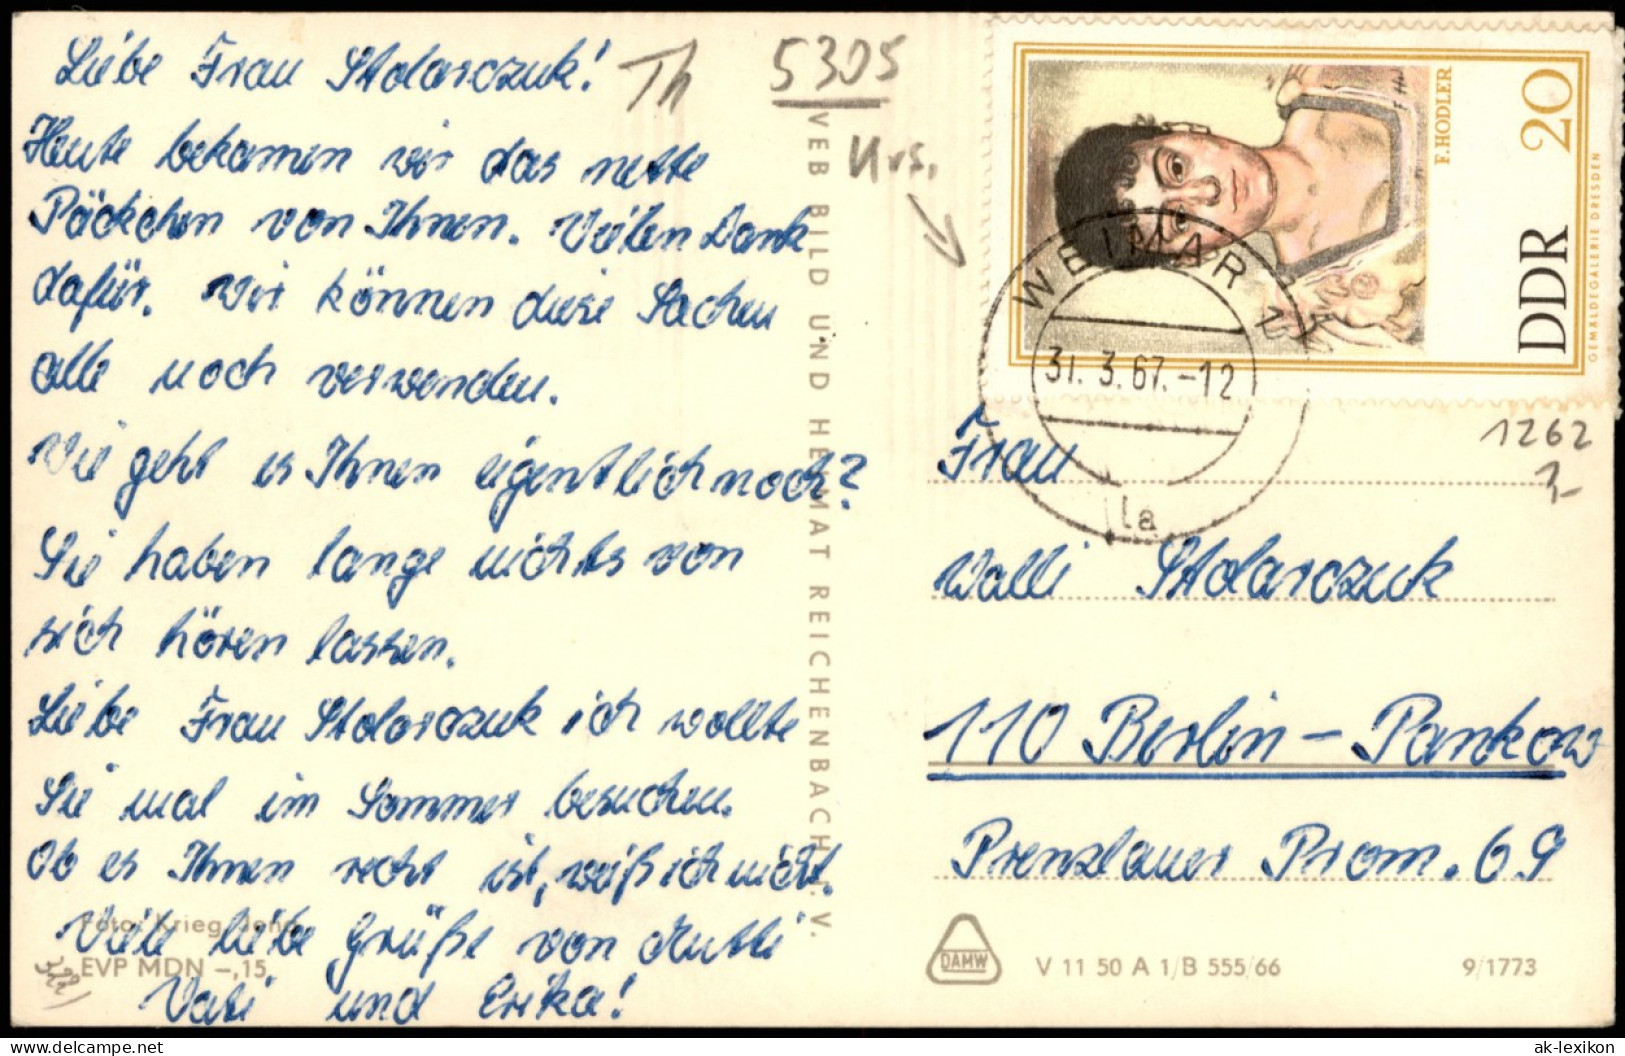 Liebe Frau Stolarczuk!
Heute bekamen wir das nette
Päckchen von Ihnen. Vielen Dank
dafür. Wir können diese Sachen
alle noch verwenden.
Wie geht es Ihnen eigentlich noch?
Sie haben lange nichts von
sich hören lassen.
Liebe Frau Stolarczuk ich wollte
Sie mal im Sommer besuchen.
Ob es Ihnen recht ist, weiß ich nicht.
Viele liebe Grüße von Mutti
Vati und Erika!
Foto: Krieg, Jena
EVP MDN -,15
322/
Th
5305
Urs.
VEB BILD UND HEIMAT REICHENBACH I. V.
F. HODLER
DDR 20
GEMÄLDEGALERIE DRESDEN
WEIMAR 1
31. 3. 67. -12
la
1262
3,-
Frau
Walli Stolarczuk
110 Berlin-Pankow
Prenzlauer Prom. 69
DAMW
V 11 50 A 1/B 555/66
9/1773
www.delcampe.net
ak-lexikon